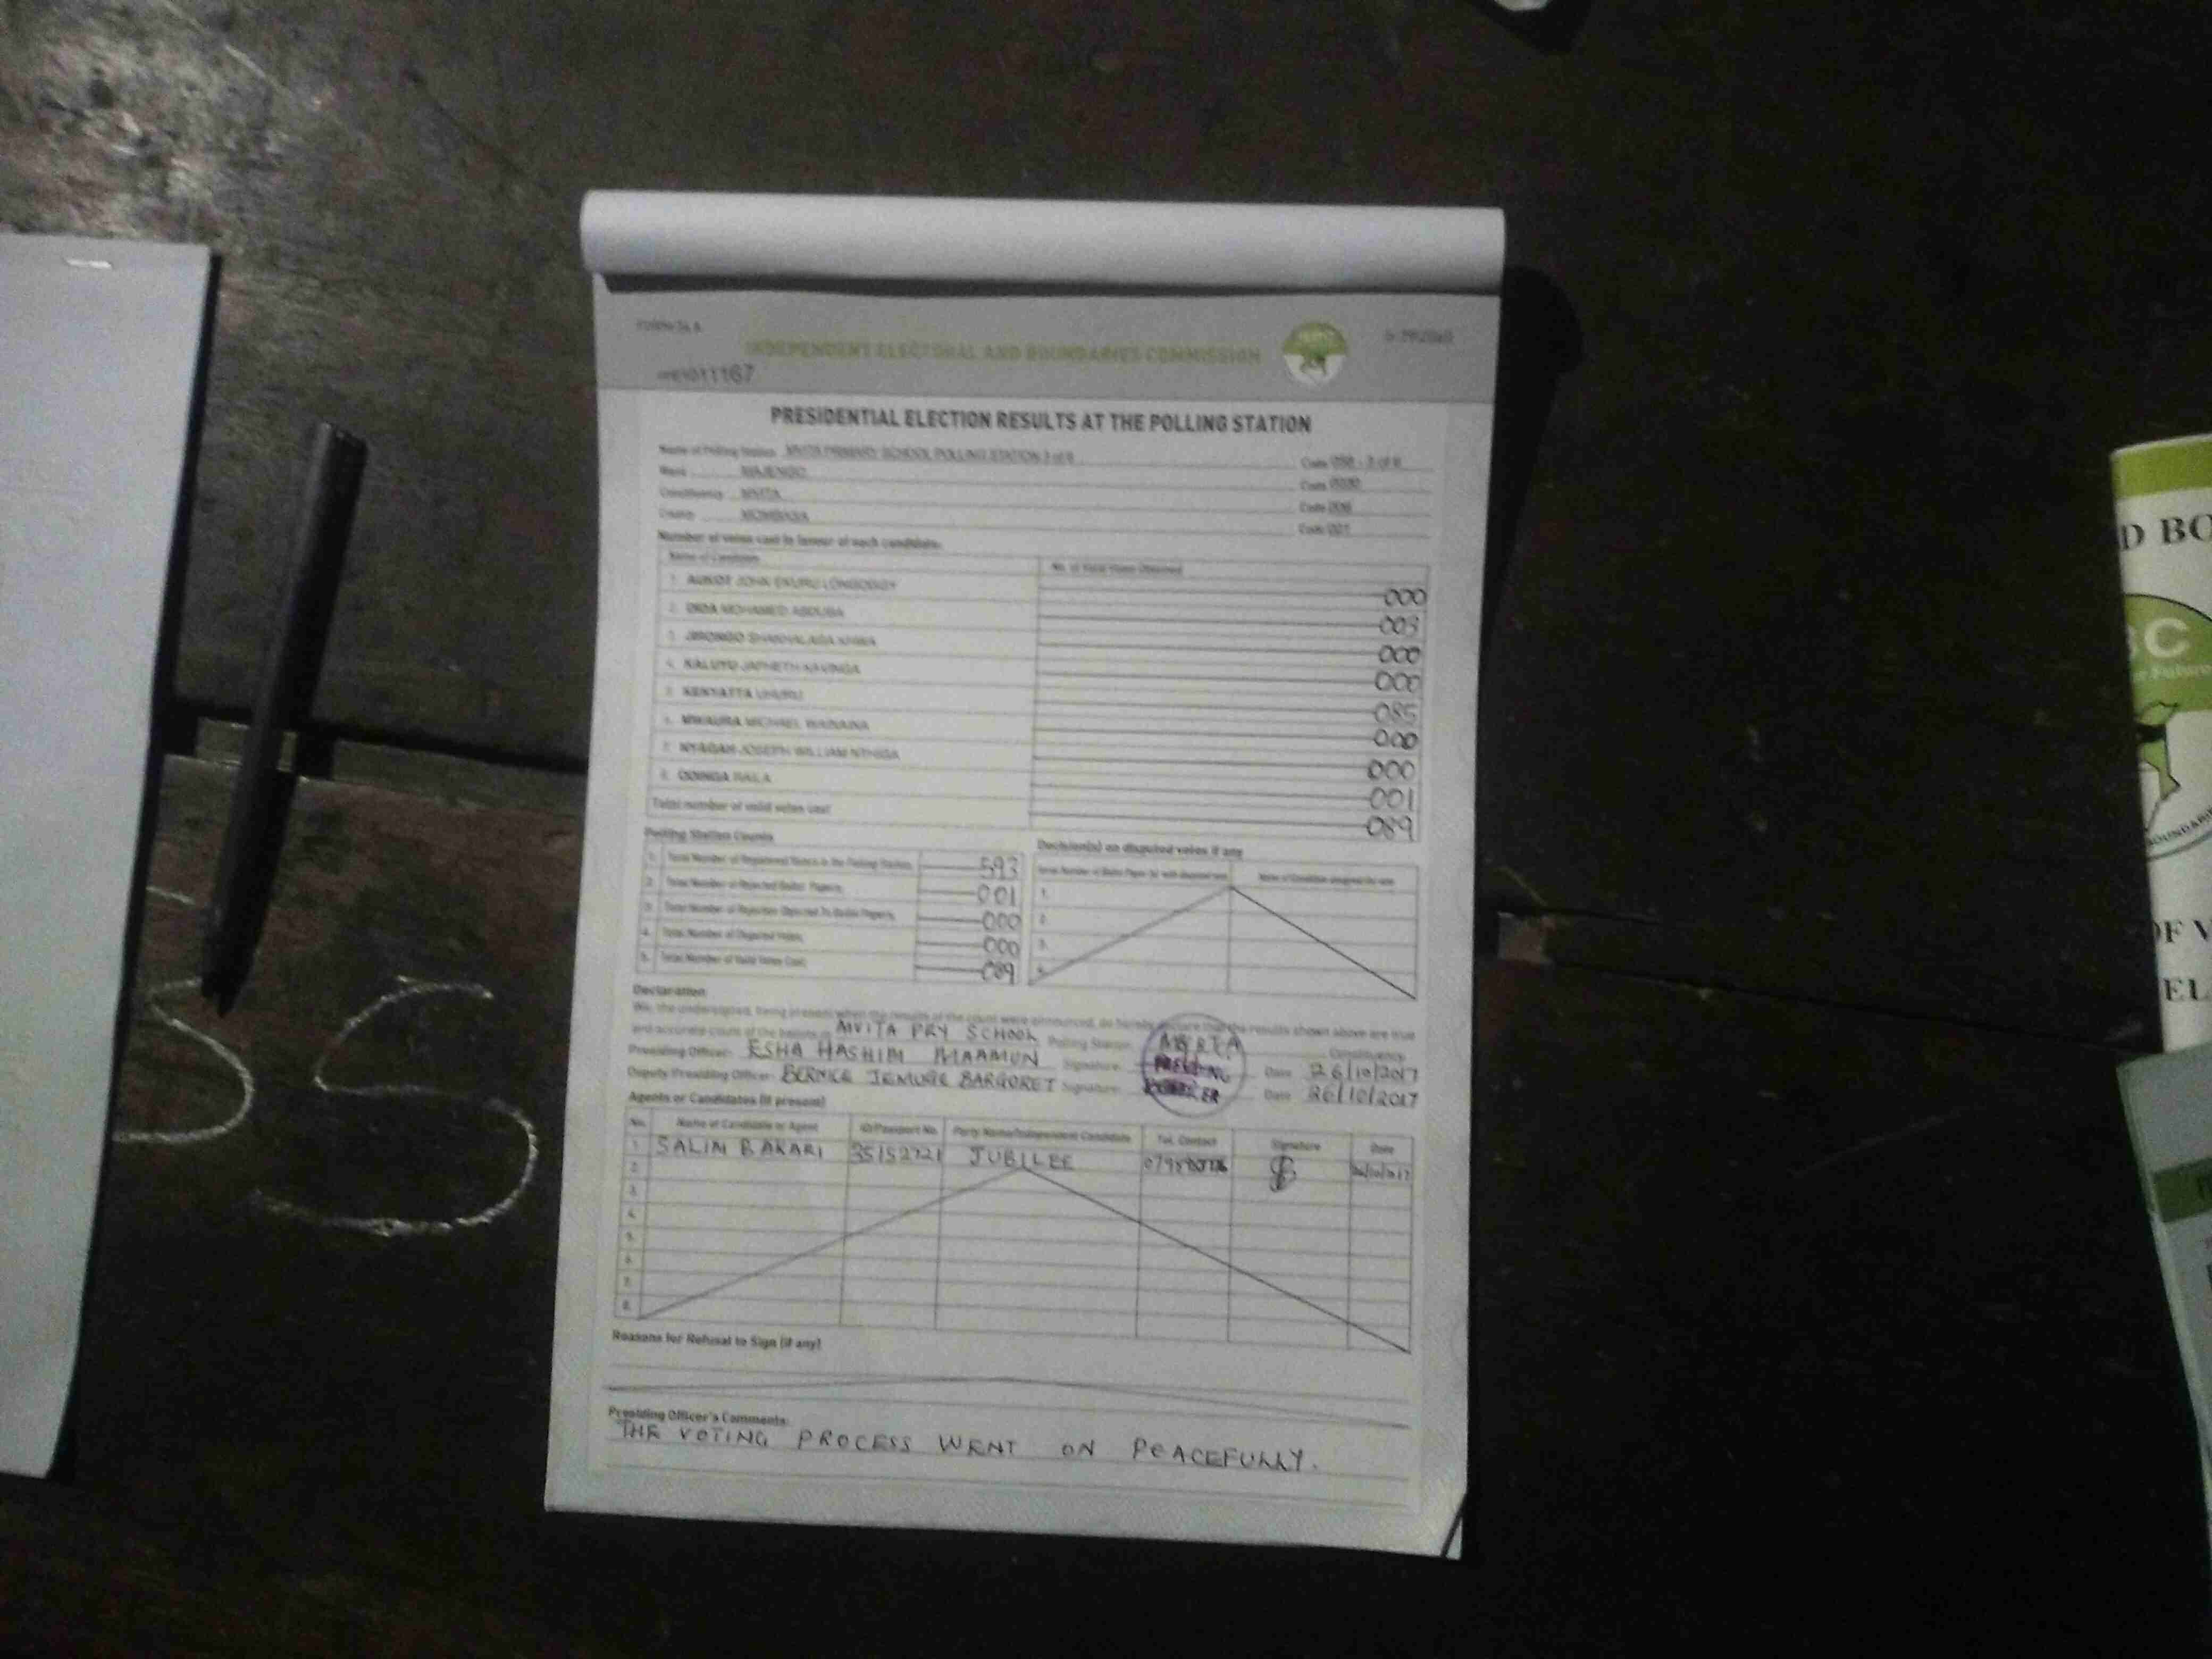 FORM 34 A
INDEPENDENT ELECTORAL AND BOUNDARIES COMMISSION
011167
PRESIDENTIAL ELECTION RESULTS AT THE POLLING STATION
Name of Polling Station MVITA PRIMARY SCHOOL POLLING STATION
Ward MAJENGO
Constituency MVITA Code
County MOMBASA Code 001
Number of votes cast in favour of each candidate:
Name of Candidate No. of Valid Votes Obtained
1. AUKOT JOHN EKURU LONGOGGY 000
2. DIDA MOHAMED ABDUBA 003
3. JIRONGO SHAKHALAGA KHWA 000
4. KALUYU JAPHETH KAVINGA 000
5. KENYATTA UHURU 085
6. MWAURA MICHAEL WAINAINA 000
7. NYAGAH JOSEPH WILLIAM NTHIGA 000
8. ODINGA RAILA 001
Total number of valid votes cast 089
Polling Station Counts
1. Total Number of Registered Voters in the Polling Station 593
2. Total Number of Rejected Ballot Papers 001
3. Total Number of Rejection Objected To Ballot Papers 000
4. Total Number of Disputed Votes 000
5. Total Number of Valid Votes Cast 089
Decision(s) on disputed votes if any
1.
2.
3.
4.
Declaration
We, the undersigned, being present when the results of the count were announced, do hereby declare that the results shown above are true
and accurate count of the ballots in MVITA PRY SCHOOL Polling Station MVITA Constituency
Presiding Officer: ESHA HASHIM MAAMUN Signature Date 26/10/2017
Deputy Presiding Officer: BERNICE JEMUGE BARGORET Signature Date 26/10/2017
PRESIDING
Agents or Candidates (if present)
No. Name of Candidate or Agent ID/Passport No. Party Name/Independent Candidate Tel. Contact Signature Date
1. SALIM BAKARI 35152721 JUBILEE
2.
3.
4.
5.
6.
7.
8.
Reasons for Refusal to Sign (if any)
Presiding Officer's Comments:
THE VOTING PROCESS WENT ON PEACEFULLY.
D BO
BC
OUNDARI
OF V
EL